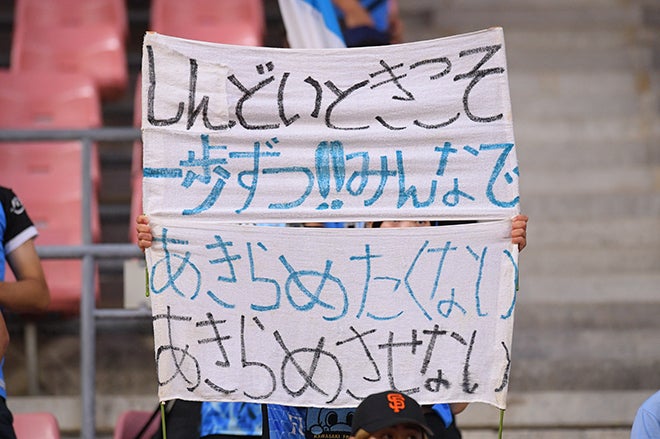 しんどいときこそ
一歩ずつ!!みんなで
あきらめたくない
あきらめさせない
SF